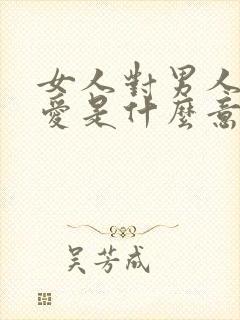 女人對男人
愛是什麼意
吴芳成